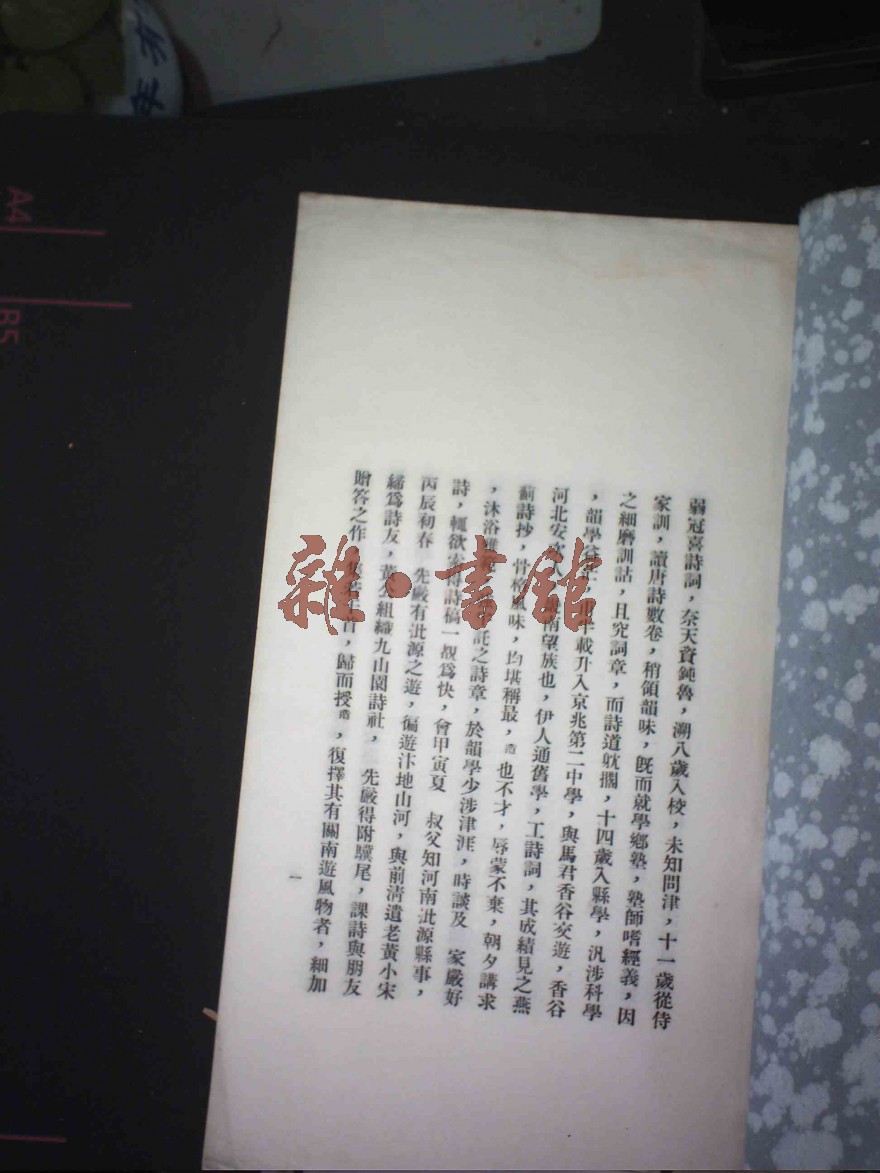 弱冠喜詩詞，奈天資鈍魯，溯八歲入校，未知問津，十一歲從侍
家訓，讀唐詩數卷，稍領韻味，旣而就學鄉塾，塾師嗜經義，因
之細磨訓詁，且究詞章，而詩道躭擱，十四歲入縣學，汎涉科學
，韻學 載升入京兆第二中學，與馬君香谷交遊，香谷
河北安 南望族也，伊人通舊學，工詩詞，其成績見之燕
薊詩抄，骨格風味，均堪稱最， 也不才，辱蒙不棄，朝夕講求
，沐浴 託之詩章，於韻學少涉津涯，時談及 家嚴好
詩，輒欲 詩稿一覩爲快，會甲寅夏 叔父知河南沘源縣事，
丙辰初春 先嚴有沘源之遊，徧遊汴地山河，與前清遺老黃小宋
締爲詩友，黃公組織九山園詩社， 先嚴得附驥尾，課詩與朋友
贈答之作， 首，歸而授 ，復擇其有關南遊風物者，細加
一
雜·書館
A4
B5